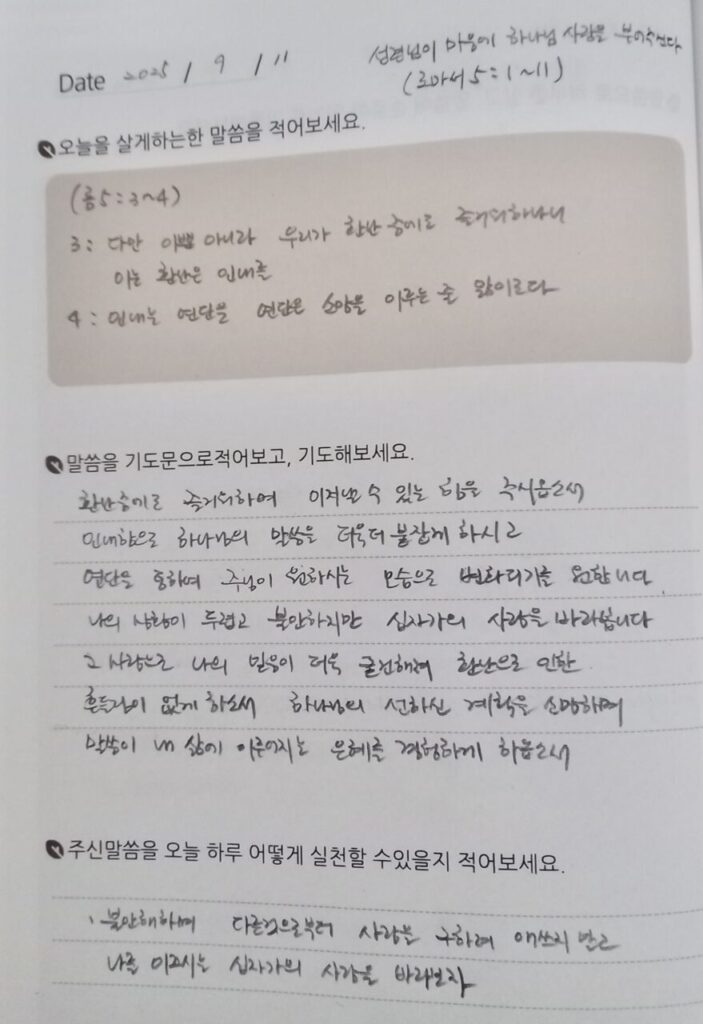 Date 2025 / 9 / 11
성령님이 마음에 하나님 사랑을 부어주셨다
(로마서 5:1~11)
오늘을 살게하는한 말씀을 적어보세요.
(롬5:3~4)
3: 다만 이뿐 아니라 우리가 환난 중에도 즐거워하나니
이는 환난은 인내를
4: 인내는 연단을 연단은 소망을 이루는 줄 앎이로다
말씀을 기도문으로적어보고, 기도해보세요.
환난중에도 즐거워하여 이겨낼 수 있는 힘을 주시옵소서
인내함으로 하나님의 말씀을 더욱더 붙잡게 하시고
연단을 통하여 주님이 원하시는 모습으로 변화되기를 원합니다
나의 상황이 두렵고 불안하지만 십자가의 사랑을 바라봅니다
그 사랑으로 나의 믿음이 더욱 굳건해져 환난으로 인한
흔들림이 없게 하소서 하나님의 선하신 계획을 소망하며
말씀이 내 삶에 이루어지는 은혜를 경험하게 하옵소서
주신말씀을 오늘 하루 어떻게 실천할 수있을지 적어보세요.
불안해하며 다른것으로부터 사랑을 구하려 애쓰지 말고
나를 이끄시는 십자가의 사랑을 바라보자